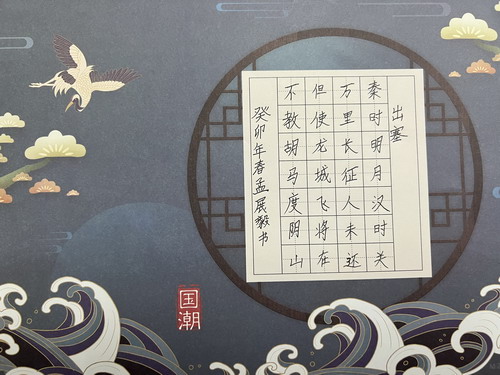 出塞
秦时明月汉时关
万里长征人未还
但使龙城飞将在
不教胡马度阴山
癸卯年春孟展毅书
国潮